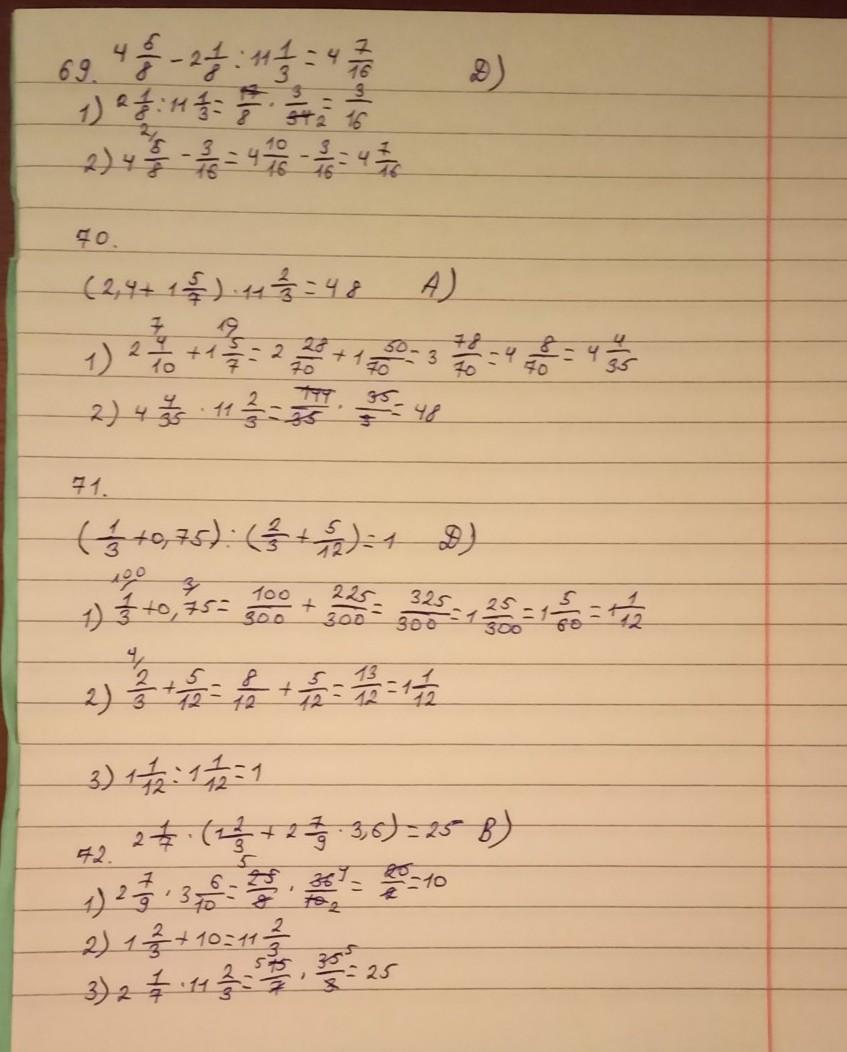 69. 4 5/8 - 2 1/8 : 11 1/3 = 4 7/16 D)
1) 2 1/8 : 11 1/3 = 17/8 · 3/34 2 = 3/16
2) 4 2/ 5/8 - 3/16 = 4 10/16 - 3/16 = 4 7/16
70.
(2,4 + 1 5/7) · 11 2/3 = 48 A)
7 10
1) 2 4/10 + 1 5/7 = 2 28/70 + 1 50/70 = 3 78/70 = 4 8/70 = 4 4/35
2) 4 4/35 · 11 2/3 = 144/35 · 35/3 = 48
71.
(1/3 + 0,75) : (2/3 + 5/12) = 1 D)
100/ 3/
1) 1/3 + 0,75 = 100/300 + 225/300 = 325/300 = 1 25/300 = 1 5/60 = 1 1/12
4/
2) 2/3 + 5/12 = 8/12 + 5/12 = 13/12 = 1 1/12
3) 1 1/12 : 1 1/12 = 1
72. 2 1/7 · (1 2/3 + 2 7/9 · 3,6) = 25 B)
1) 2 7/9 · 3 6/10 = 5 25/9 · 36 4/10 2 = 20/2 = 10
2) 1 2/3 + 10 = 11 2/3
3) 2 1/7 · 11 2/3 = 5 15/7 · 35 5/3 = 25